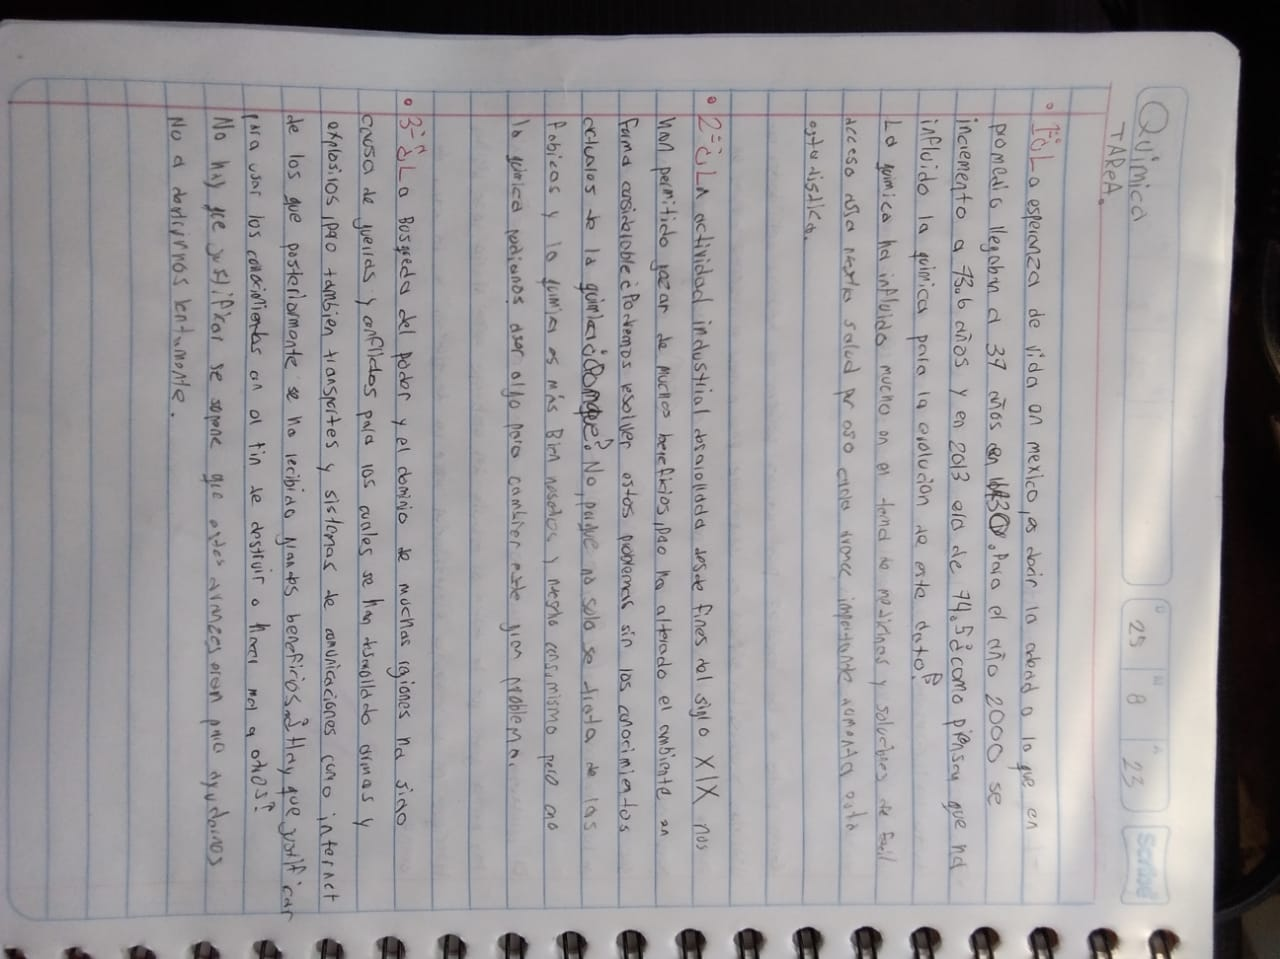 Química
TAReA.
25 8 23
Scribe
• 1-¿La esperanza de vida en mexico, es decir la edad a la que en
promedio llegaban a 37 años en 1930. Para el año 2000 se
incremento a 73.6 años y en 2013 era de 74.5 ¿como piensas que ha
influido la quimica para la evolución de este dato?
La quimica ha influido mucho en el tema de medicinas y soluciones de facil
acceso para nuestra salud por eso cada avance importante aumenta esta
estadistica.
• 2-¿La actividad industrial desarollada desde fines del siglo XIX nos
han permitido gozar de muchos beneficios, pero ha alterado el ambiente en
forma considerable ¿Podremos resolver estos problemas sin los conocimientos
actuales de la quimica? ¿Porque? No, porque no solo se trata de las
fabicas y la quimica es más Bien nosotros y nuestro consumismo pero ao
la quimica podriamos usar algo para cambiar este gran problema.
• 3-¿La Busqueda del poder y el dominio de muchas regiones ha sido
causa de guerras y conflictos para los cuales se han desarrollado armas y
explosivos, pero tambien transportes y sistemas de comunicaciones como internet
de los que posteriormente se ha recibido grandes beneficios ¿Hay que justificar
para usar los conocimientos en al fin de destruir o hacer mal a otros?
No hay que justificar se supone que estos avances eran para ayudarnos
No a destruirnos lentamente.